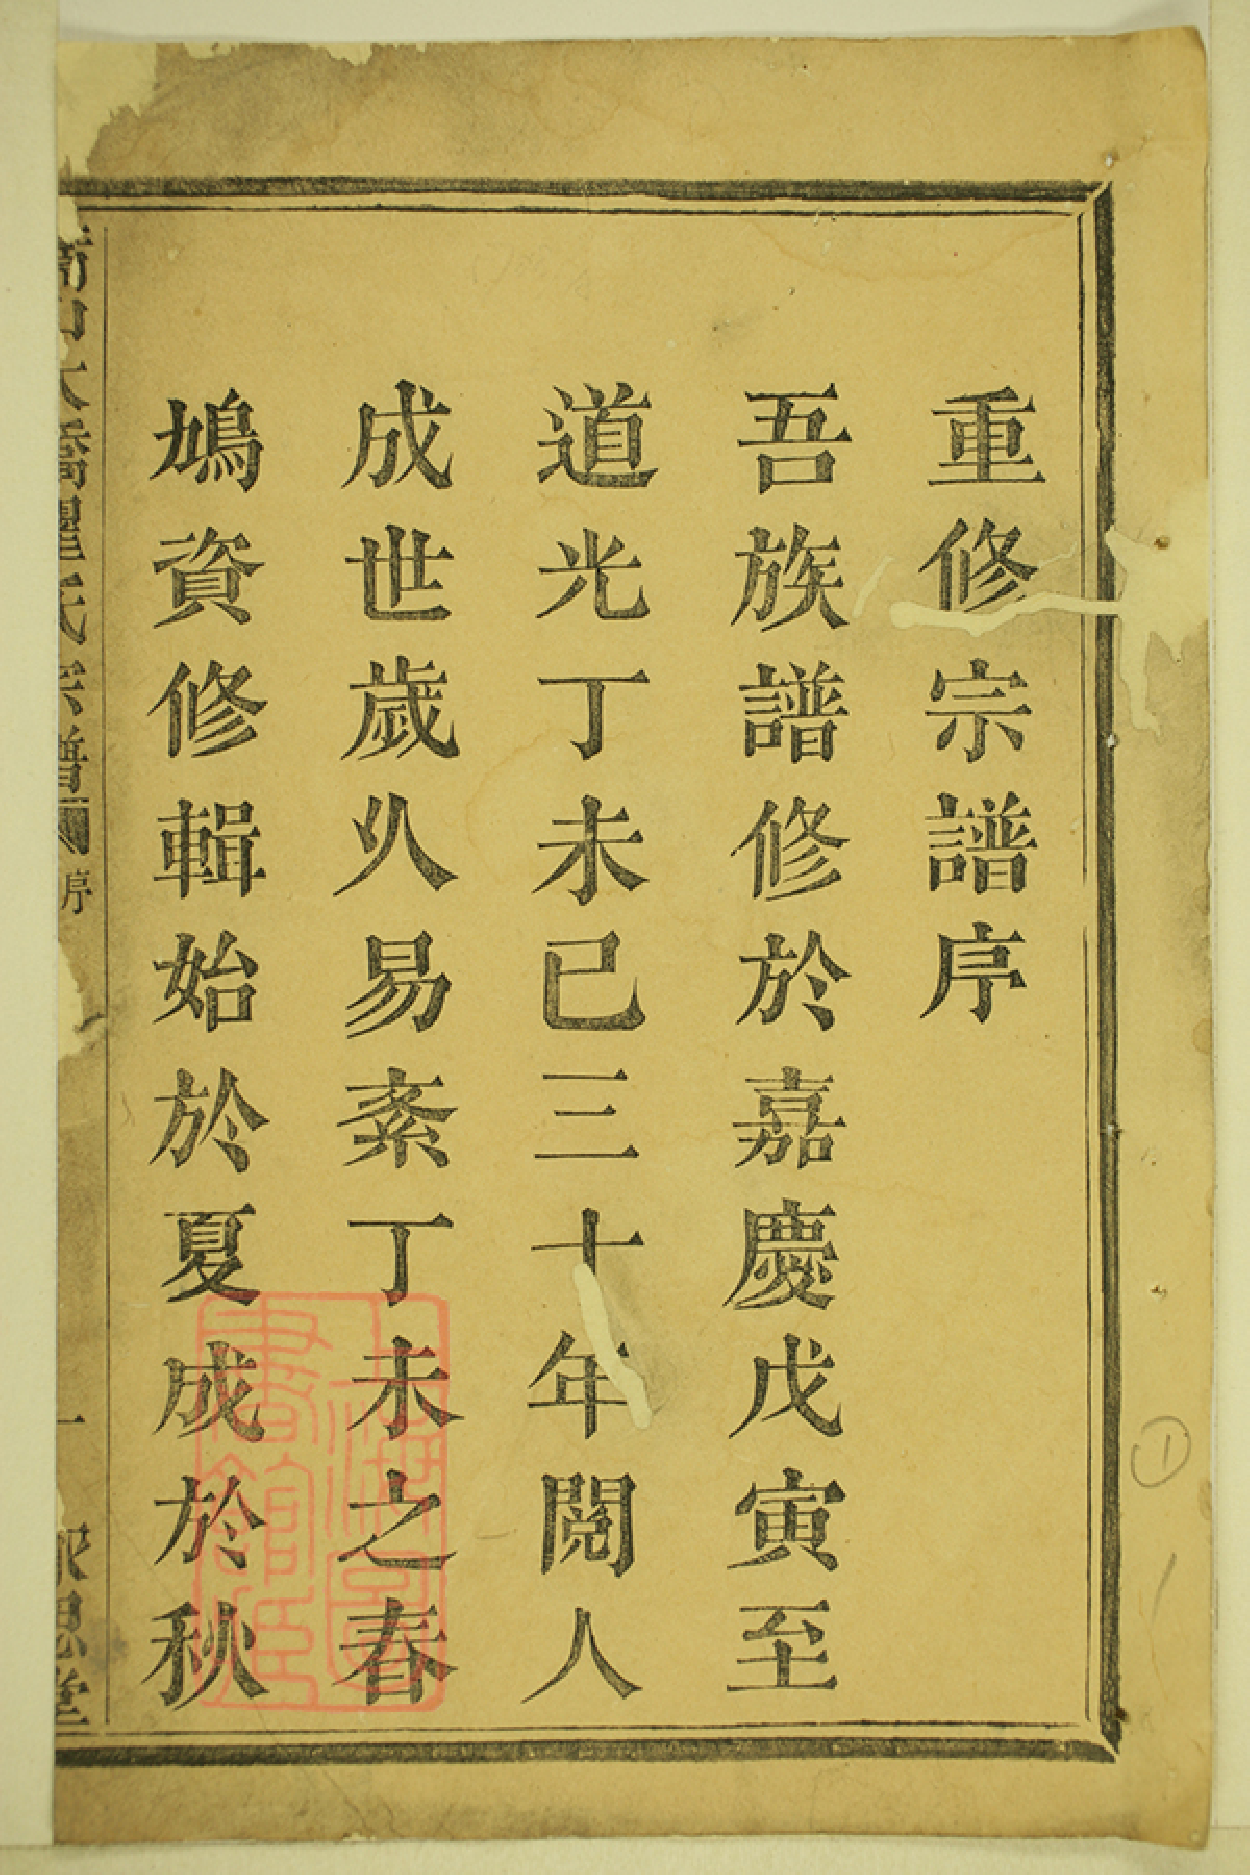 重修宗譜序
吾族譜修於嘉慶戊寅至
道光丁未已三十年閱人
成世歲久易紊丁未之春
鳩資修輯始於夏成於秋
大橋瞿氏宗譜
序
一
思堂
上海圖書館藏